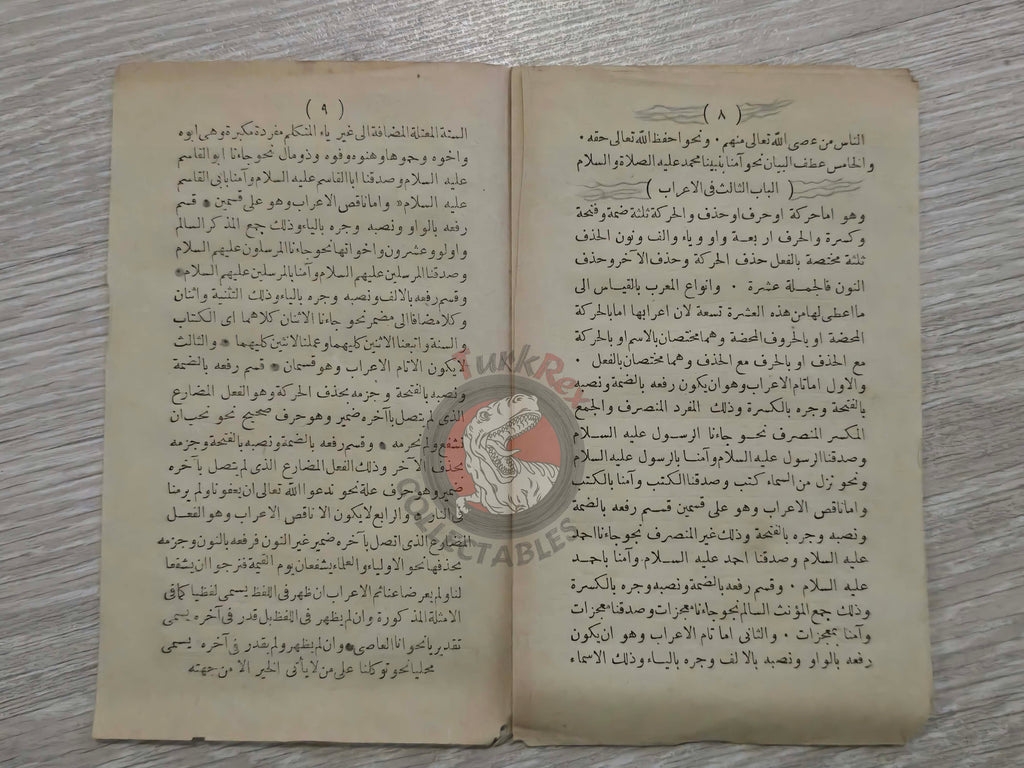 ( ٨ )
الناس من عصى الله تعالى منهم ٠ ونحو احفظ الله تعالى حقه ٠
والخامس عطف البيان نحو آمنا بنبينا محمد عليه الصلاة والسلام
( الباب الثالث فى الاعراب )
وهو اما حركة او حرف او حذف والحركة ثلثة ضمة وفتحة
وكسرة والحرف اربعة واو وياء والف ونون الحذف
ثلثة مختصة بالفعل حذف الحركة وحذف الآخر وحذف
النون فالجملة عشرة ٠ وانواع المعرب بالقياس الى
ما اعطى لها من هذه العشرة تسعة لان اعرابها اما بالحركة
المحضة او بالحروف المحضة وهما مختصان بالاسم او بالحركة
مع الحذف او بالحرف مع الحذف وهما مختصان بالفعل ٠
والاول اما تام الاعراب وهو ان يكون رفعه بالضمة ونصبه
بالفتحة وجره بالكسرة وذلك المفرد المنصرف والجمع
المكسر المنصرف نحو جاءنا الرسول عليه السلام
وصدقنا الرسول عليه السلام وآمنا بالرسول عليه السلام
ونحو نزل من السماء كتب وصدقنا الكتب وآمنا بالكتب
واما ناقص الاعراب وهو على قسمين قسم رفعه بالضمة
ونصبه وجره بالفتحة وذلك غير المنصرف نحو جاءنا احمد
عليه السلام وصدقنا احمد عليه السلام وآمنا باحمد
عليه السلام ٠ وقسم رفعه بالضمة ونصبه وجره بالكسرة
وذلك جمع المؤنث السالم نحو جاءنا معجزات وصدقنا معجزات
وآمنا بمعجزات ٠ والثانى اما تام الاعراب وهو ان يكون
رفعه بالواو ونصبه بالالف وجره بالياء وذلك الاسماء
( ٩ )
الستة المعتلة المضافة الى غير ياء المتكلم مفردة مكبرة وهى ابوه
واخوه وحموها وهنوه وفوه وذو مال نحو جاءنا ابو القاسم
عليه السلام وصدقنا ابا القاسم عليه السلام وآمنا بابى القاسم
عليه السلام واما ناقص الاعراب وهو على قسمين قسم
رفعه بالواو ونصبه وجره بالياء وذلك جمع المذكر السالم
واولو وعشرون واخواتها نحو جاءنا المرسلون عليهم السلام
وصدقنا المرسلين عليهم السلام وآمنا بالمرسلين عليهم السلام
وقسم رفعه بالالف ونصبه وجره بالياء وذلك التثنية واثنان
وكلا مضافا الى مضمر نحو جاءنا الاثنان كلاهما اى الكتاب
والسنة واتبعنا الاثنين كليهما وعملنا الاثنين كليهما والثالث
لا يكون الا تام الاعراب وهو قسمان قسم رفعه بالضمة
ونصبه بالفتحة وجزمه بحذف الحركة وهو الفعل المضارع
الذى لم يتصل بآخره ضمير وهو حرف صحيح نحو نحب ان
نشفع ولم نحرمه وقسم رفعه بالضمة ونصبه بالفتحة وجزمه
بحذف الآخر وذلك الفعل المضارع الذى لم يتصل بآخره
ضمير وهو حرف علة نحو ندعو الله تعالى ان يعفونا ولم يرمنا
فى النار والرابع لا يكون الا ناقص الاعراب وهو الفعل
المضارع الذى اتصل بآخره ضمير غير النون فرفعه بالنون وجزمه
بحذفها نحو الاولياء والعلماء يشفعان يوم القيمة فنرجو ان يشفعا
لنا ولم يعرضا عنا ثم الاعراب ان ظهر فى اللفظ يسمى لفظيا كما فى
الامثلة المذكورة وان لم يظهر فى اللفظ بل قدر فى آخره يسمى
تقديريا نحو انا العاصى وان لم يظهر ولم يقدر فى آخره يسمى
محليا نحو توكلنا على من لا يأتى الخير الا من جهته
TurkRex
COLLECTABLES